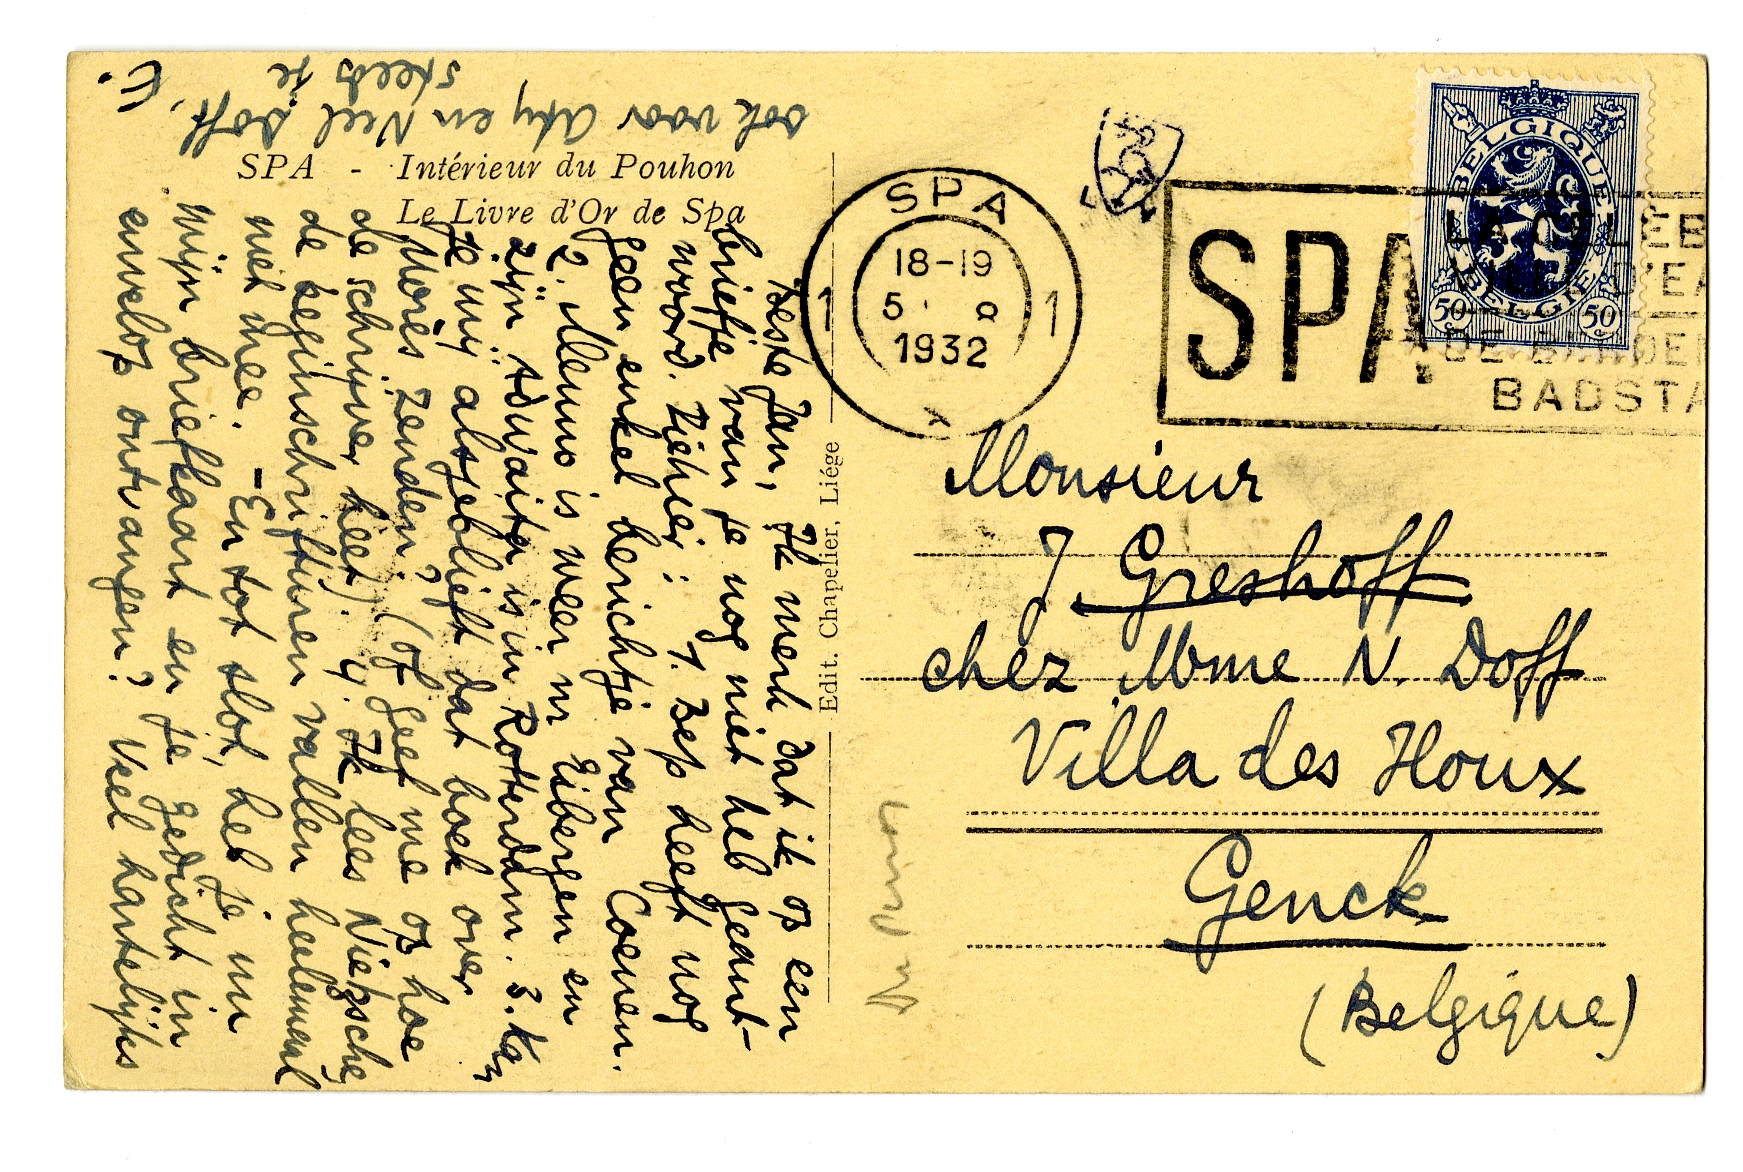 SPA - Intérieur du Pouhon
Le Livre d'Or de Spa
Beste Jan, Ik merk dat ik op een
briefje van je nog niet heb geant-
woord. Ziehier: 1. Bep heeft nog
geen enkel berichtje van Coenen.
2. Menno is weer in Eibergen en
zijn Adwaita is in Rotterdam. 3. Kan
je mij alsjeblieft dat boek over
Morès zenden? (of geef me op hoe
de schrijver heet). 4. Ik lees Nietzsche,
de beginschriften vallen heelemaal
niet mee. - En tot slot, heb je nu
mijn briefkaart en je gedicht in
envelop ontvangen? Veel hartelijks
ook voor Aty en Neel Doff.
steeds je
E.
Edit. Chapelier, Liége
SPA
18-19
5 9
1932
1 1
x
SPA
LA CELEB
VILLE D'EA
DE BEROEM
BADSTA
BELGIQUE
BELGIE
50c 50c
Monsieur
J Greshoff
chez Mme N. Doff
Villa des Houx
Genck
(Belgique)